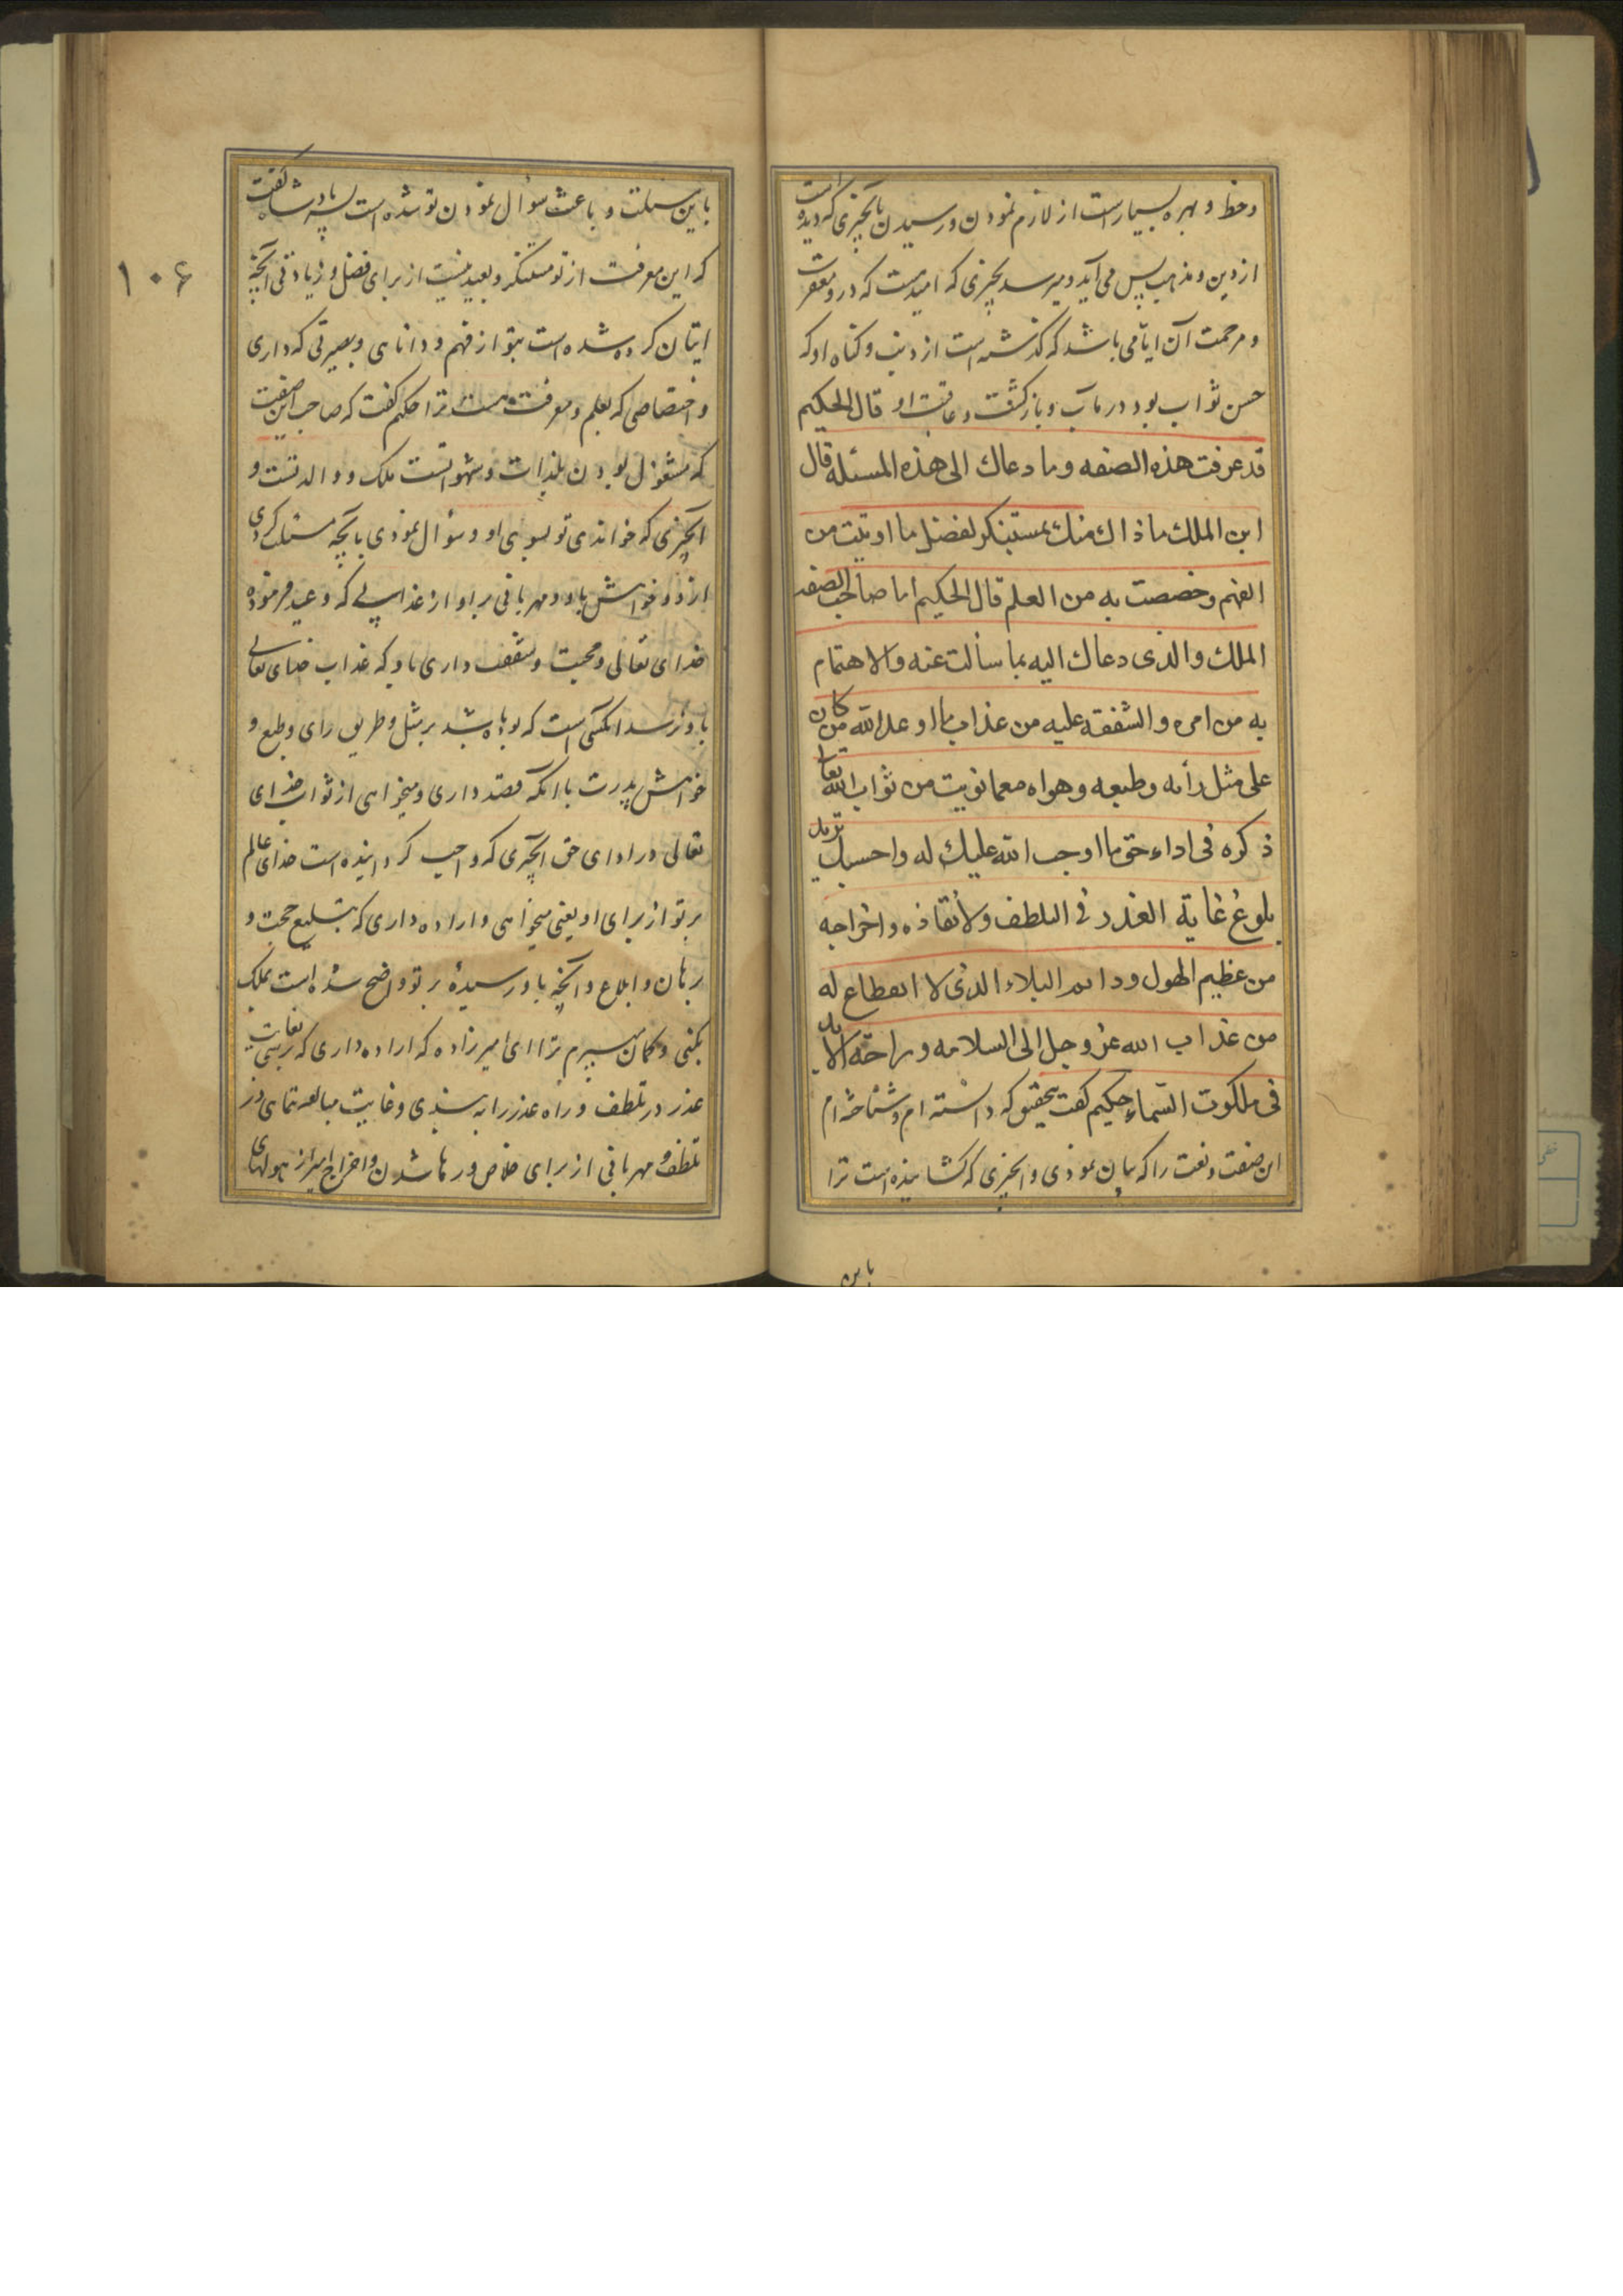 وحظ و بهره بسیار است از لازم نمودن و رسیدن بآنچیزی که دیده است
از دین و مذهب پس می آید و میرسد بچیزی که امید هست که در و مغفرت
و مرحمت آن ایامی باشد که گذشته است از ذنب و گناه او که
حسن ثواب بود در مآب و بازگشت و عاقبت او قال الحکیم
قد عرفت هذه الصفه وما دعاك الی هذه المسئله قال
ابن الملك ما ذاك منك بمستنكر لفضل ما اوتیت من
الفهم وخصصت به من العلم قال الحکیم اما صاحب الصفه
الملك والذی دعاك الیه بما سألت عنه والاهتمام
به من امره والشفقة علیه من عذاب ما اوعد الله من کان
علی مثل رأیه وطبعه وهواه مع ما نویت من ثواب الله تعالی
ذکره فی اداء حق ما اوجب الله علیك له واحسبك ترید
بلوغ غایة العذر فی التلطف ولانقاذه واخراجه
من عظیم الهول ودائم البلاء الذی لا انقطاع له
من عذاب الله عز وجل الی السلامه وراحة الابد
فی ملکوت السماء حکیم گفت بتحقیق که دانسته ام و شناخته ام
این صفت و نعت را که بیان نمودی و آنچیزی که کشانیده است ترا
باین
باین مسئلت و باعث سؤال نمودن تو شده است پسر پادشاه گفت
که این معرفت از تو مستنکر و بعید نیست از برای فضل و زیادتی آنچه
ایتان کرده شده است بتو از فهم و دانایی و بصیرتی که داری
و اختصاصی که بعلم و معرفت هست ترا حکیم گفت که صاحب این صفت
که مشغول بودن بلذات و شهواتست ملک و والد تست و
آنچیزی که خواندی تو بسوی او و سؤال نمودی بآنچه مسئلت کردی
از و خواهش باو و مهربانی بر او از عذابی که وعید فرموده
خدای تعالی و محبت و شفقت داری باو که عذاب خدای تعالی
باو نرسد آنکسی است که بوده باشد بر مثل و طریق رای و طبع و
خواهش پدرت با آنکه قصد داری و میخواهی از ثواب خدای
تعالی در ادای حق آنچیزی که واجب گردانیده است خدای عالم
بر تو از برای او یعنی میخواهی و اراده داری که تبلیغ حجت و
برهان و ابلاغ و آنچه باو رسیده بر تو واضح شده است بملک
بکنی و گمان میبرم ترا ای امیرزاده که اراده داری که برسی بغایت
عذر در تلطف و راه عذر را به بندی و غایت مبالغه نمایی در
تلطف و مهربانی از برای خلاص و رها شدن و اخراج امیر از هولهای
۱۰۶